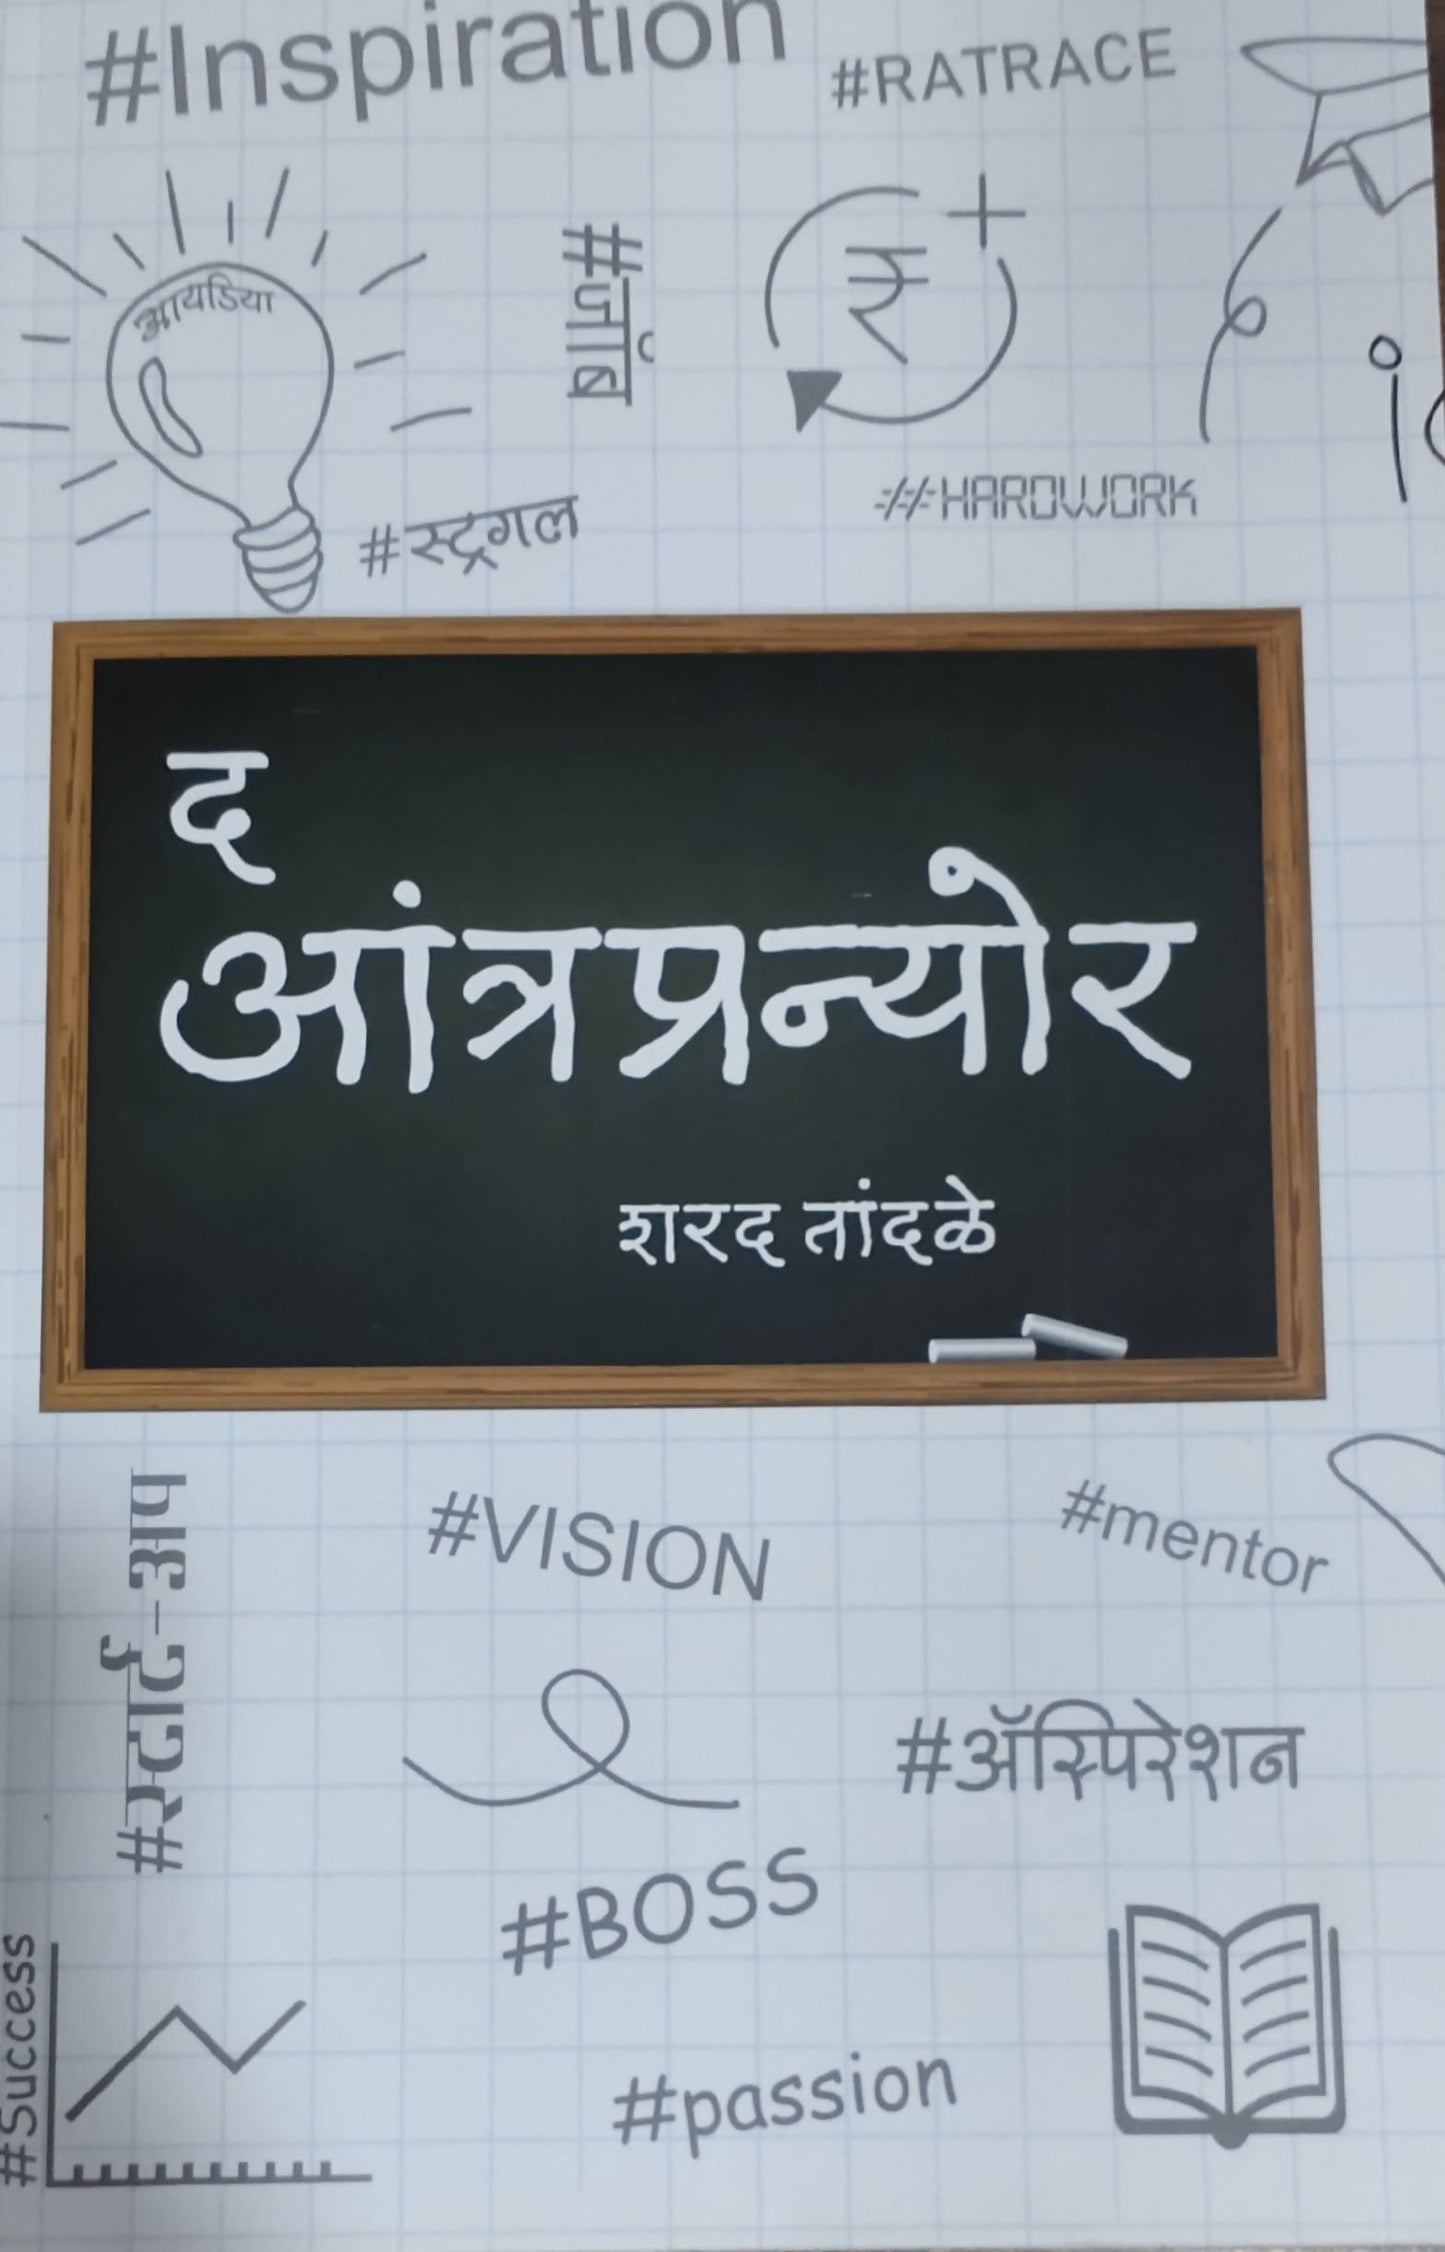 #Inspiration
#RATRACE
आयडिया
#जॉब
₹
#HARDWORK
#स्ट्रगल
द
आंत्रप्रन्योर
शरद तांदळे
#स्टार्ट-अप
#VISION
#mentor
#ॲस्पिरेशन
#BOSS
#Success
#passion